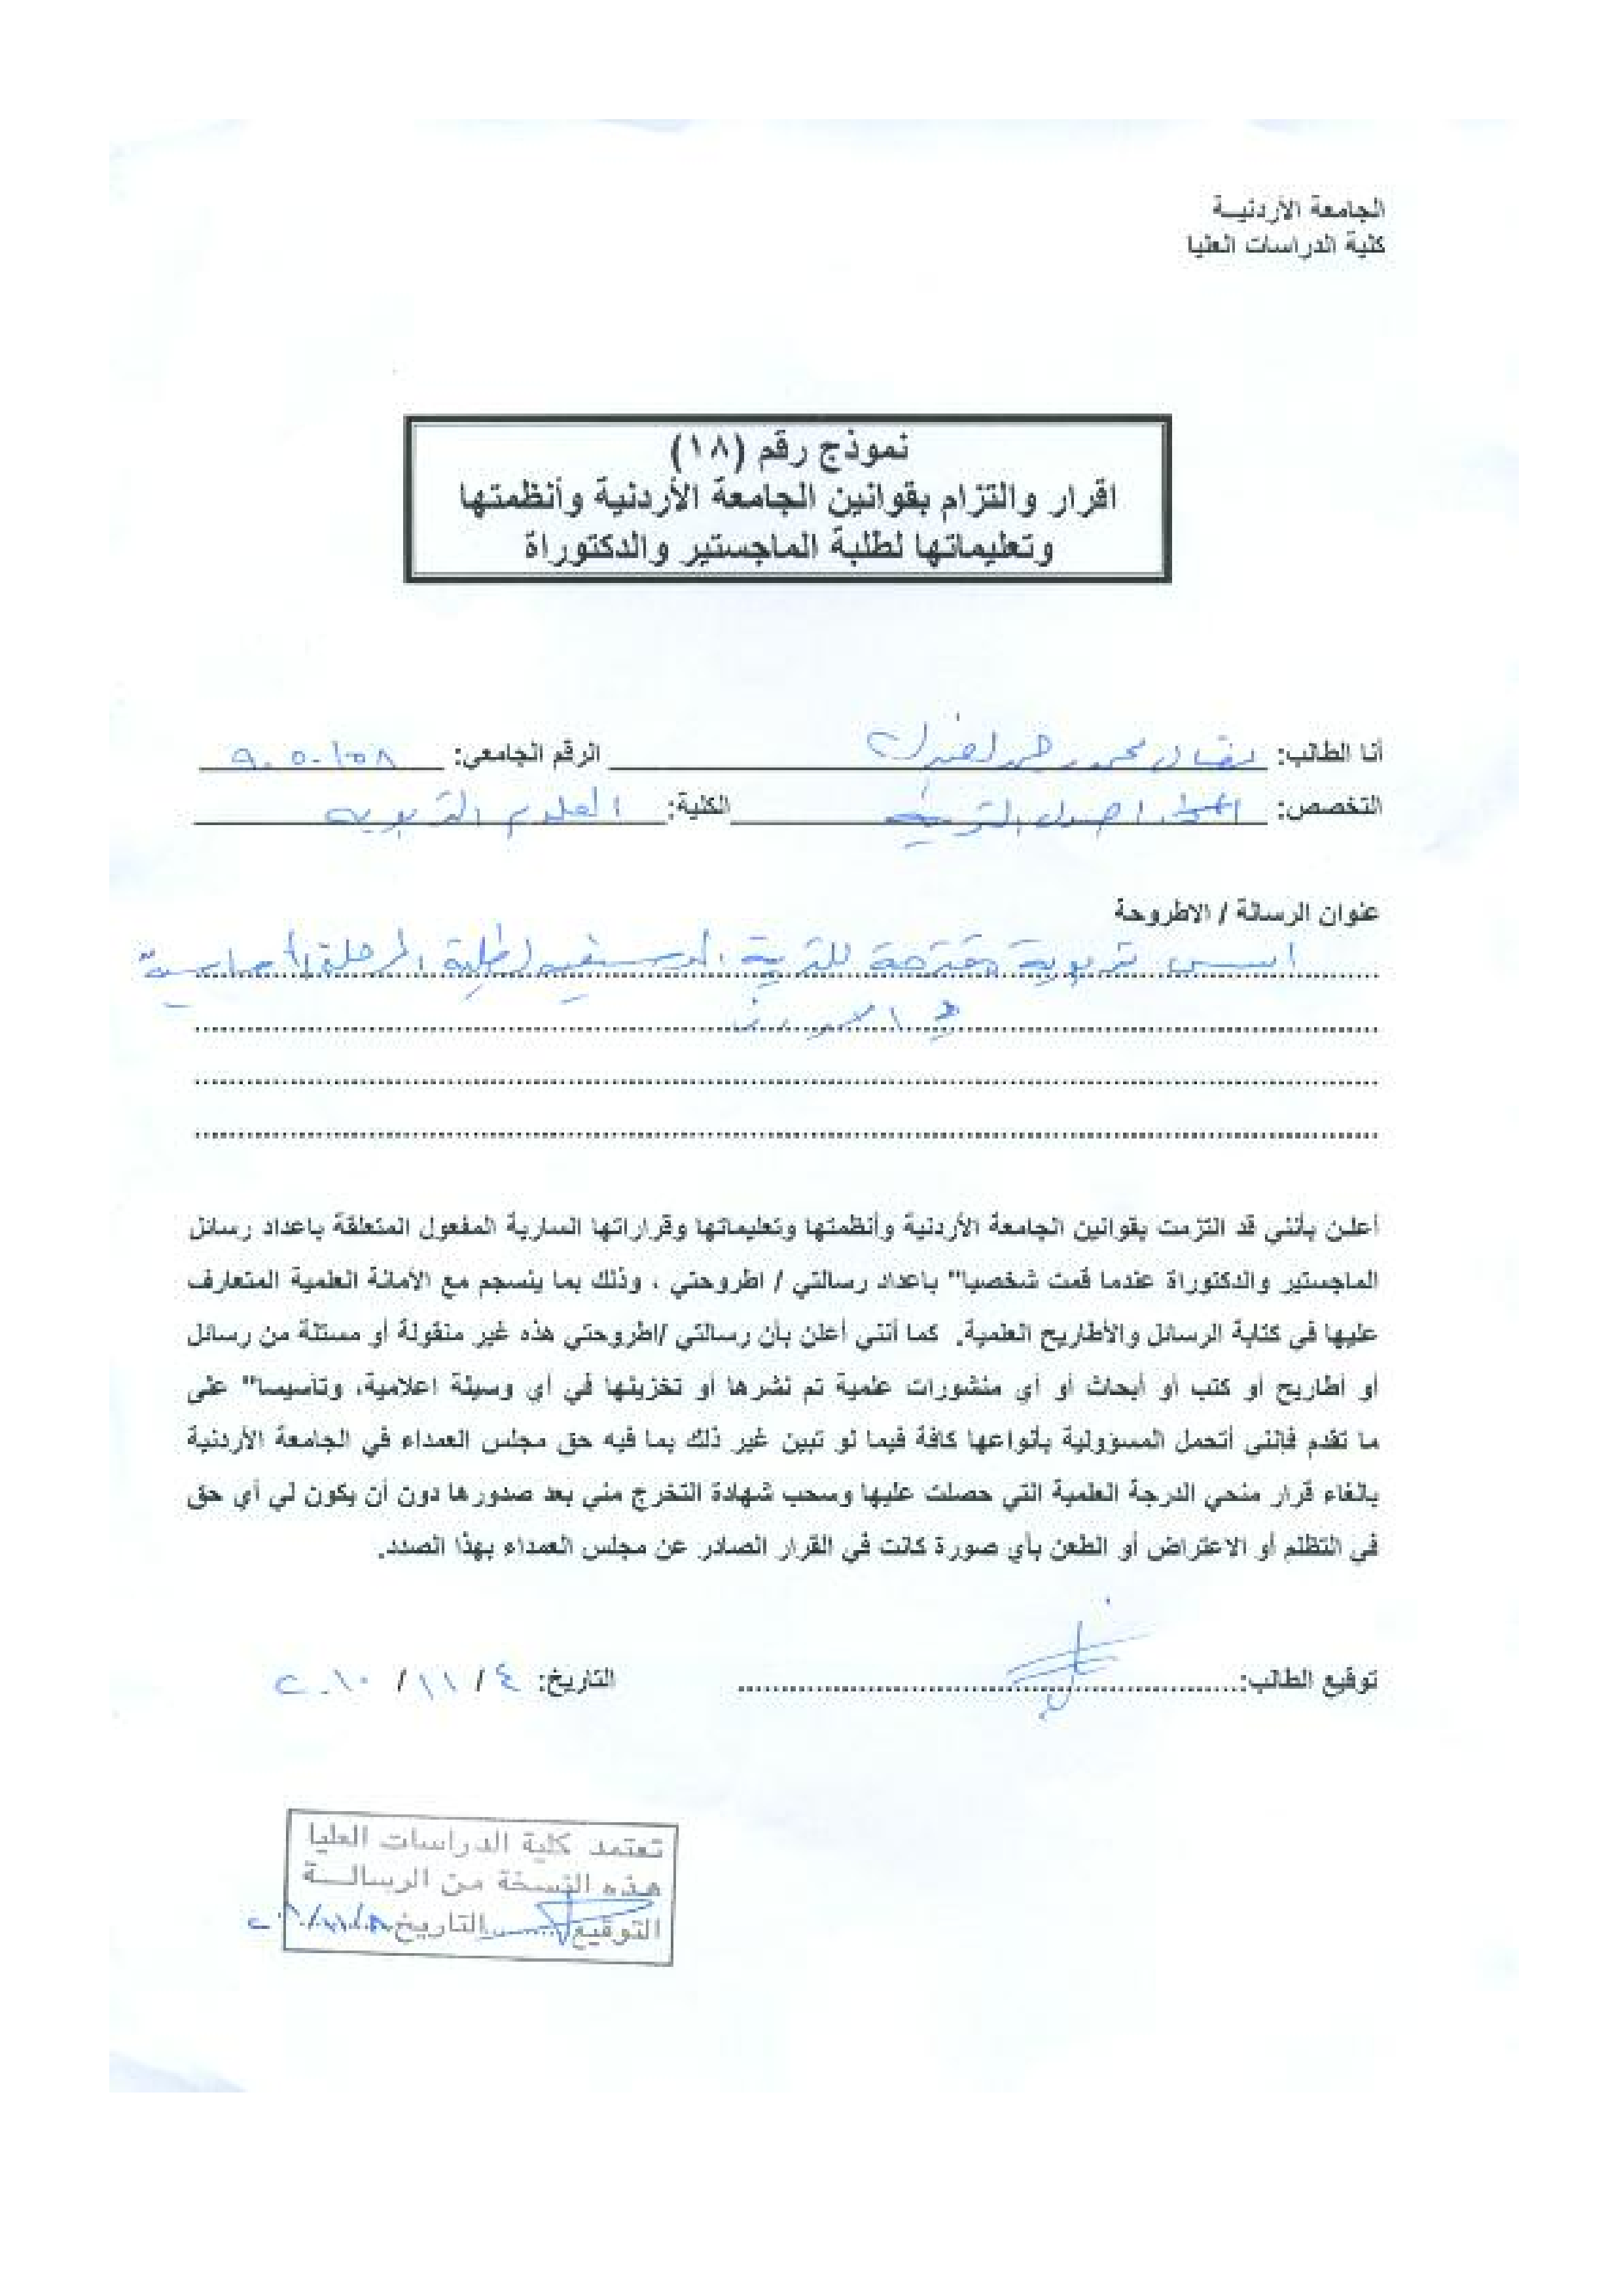 الجامعة الأردنيـة
كلية الدراسات العليا
نموذج رقم (١٨)
اقرار والتزام بقوانين الجامعة الأردنية وأنظمتها
وتعليماتها لطلبة الماجستير والدكتوراة
أنا الطالب: محمد الرقم الجامعي:
التخصص: اصول التربية الكلية: العلوم التربوية
عنوان الرسالة / الاطروحة
اسس تربوية مقترحة للتربية الموسيقية لطلبة المرحلة الاساسية
في الاردن
أعلن بأنني قد التزمت بقوانين الجامعة الأردنية وأنظمتها وتعليماتها وقراراتها السارية المفعول المتعلقة باعداد رسائل
الماجستير والدكتوراة عندما قمت شخصيا" باعداد رسالتي / اطروحتي ، وذلك بما ينسجم مع الأمانة العلمية المتعارف
عليها في كتابة الرسائل والأطاريح العلمية. كما أنني أعلن بأن رسالتي /اطروحتي هذه غير منقولة أو مستلة من رسائل
أو أطاريح أو كتب أو أبحاث أو أي منشورات علمية تم نشرها أو تخزينها في أي وسيلة اعلامية، وتأسيسا" على
ما تقدم فإنني أتحمل المسؤولية بأنواعها كافة فيما لو تبين غير ذلك بما فيه حق مجلس العمداء في الجامعة الأردنية
بالغاء قرار منحي الدرجة العلمية التي حصلت عليها وسحب شهادة التخرج مني بعد صدورها دون أن يكون لي أي حق
في التظلم أو الاعتراض أو الطعن بأي صورة كانت في القرار الصادر عن مجلس العمداء بهذا الصدد.
توقيع الطالب: التاريخ: ٤ / ١١ / ٢٠١٠
تعتمد كلية الدراسات العليا
هذه النسخة من الرسالـة
التوقيع التاريخ